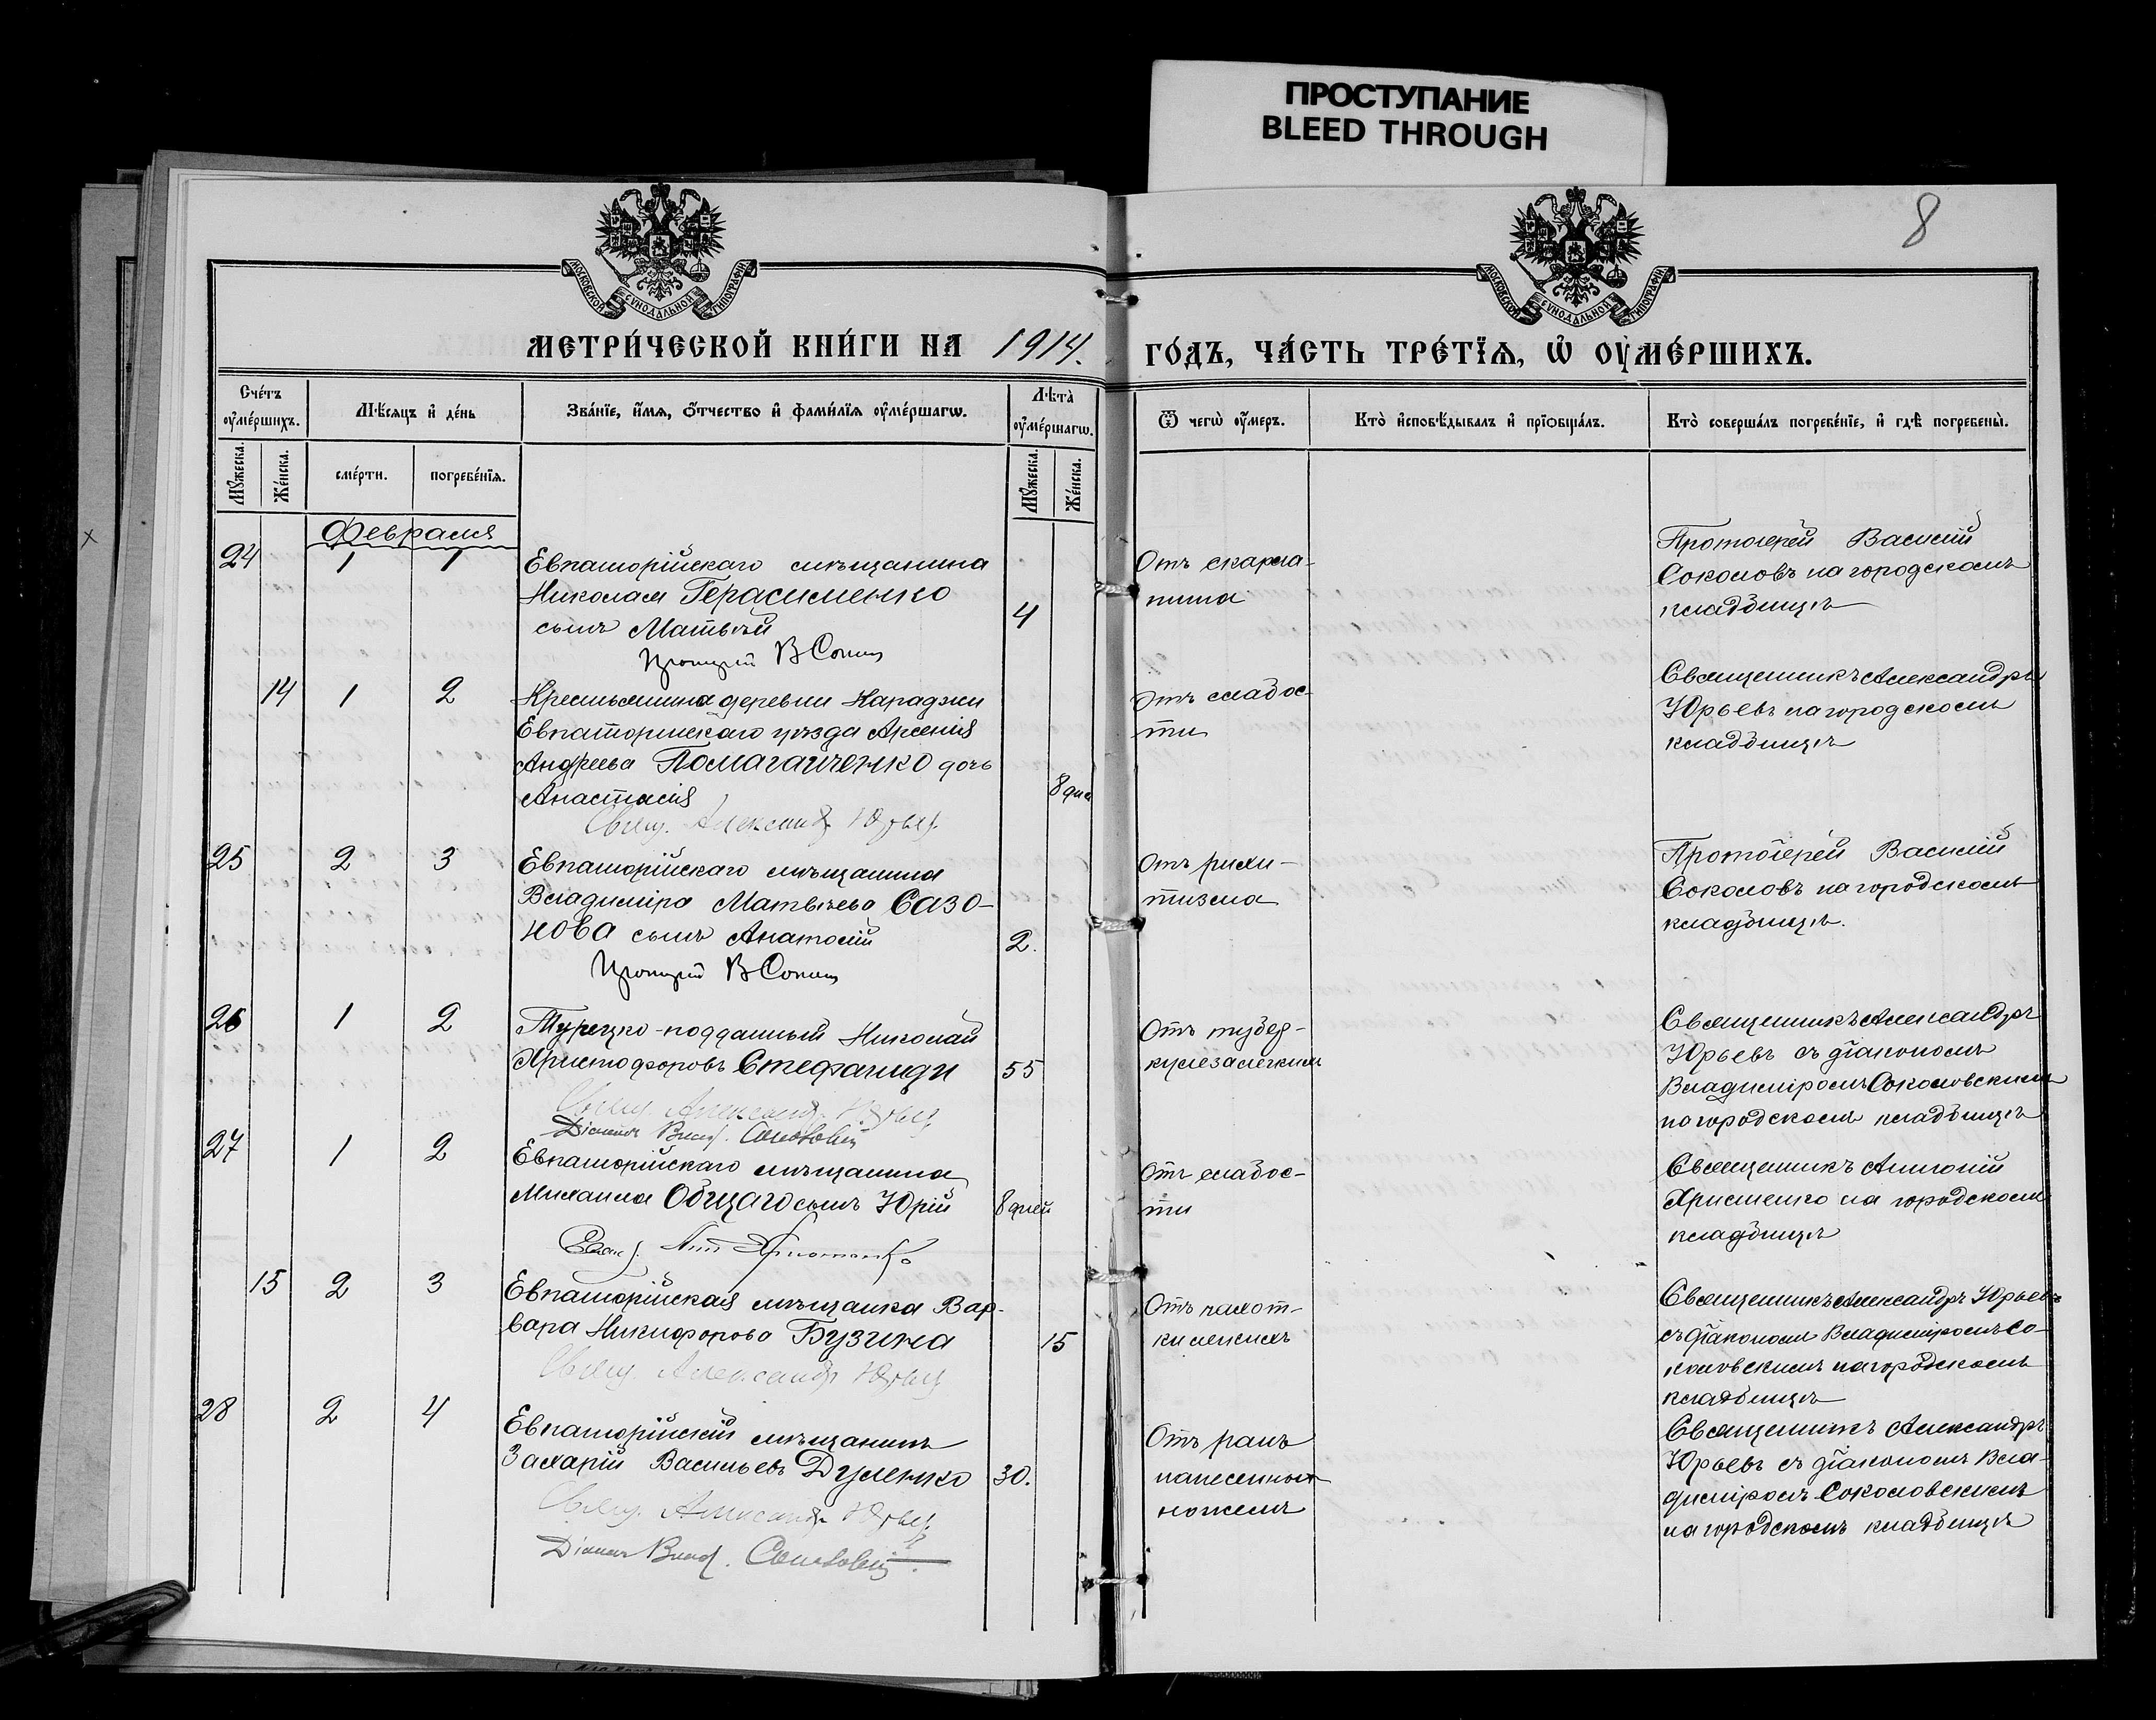 ПРОСТУПАНИЕ
BLEED THROUGH
8
МОСКОВСКОЙ СѴНОДАЛЬНОЙ ТИПОГРАФІИ
МОСКОВСКОЙ СѴНОДАЛЬНОЙ ТИПОГРАФІИ
МЕТРИ́ЧЕСКОЙ КНИ́ГИ НА 1914.
ГО́ДЪ, ЧА́СТЬ ТРЕ́ТЇѦ, Ѡ҆ ОУ҆МЕ́РШИХЪ.
Сче́тъ оу҆ме́ршихъ.
Мѣ́сяцъ и҆ де́нь
Зва́нїе, и҆́мѧ, ѻ҆́тчество и҆ фами́лїѧ оу҆ме́ршагѡ.
Лѣта̀ оу҆ме́ршагѡ.
Ѿ чегѡ̀ оу҆́меръ.
Кто̀ и҆сповѣ́дывалъ и҆ прїѡбща́лъ.
Кто̀ соверша́лъ погребе́нїе, и҆ гдѣ̀ погребены̀.
Мꙋ́жеска. Же́нска. сме́рти. погребе́нїѧ. Мꙋ́жеска. Же́нска.
Февраля
24 1 1
Евпаторійскаго мѣщанина
Николая Герасименко
сынъ Матвѣй
4
Протоіерей В Соколовъ
Отъ скарла-
тина
Протоіерей Василій
Соколовъ на городскомъ
кладбищѣ
14 1 2
Крестьянина деревни Караджи
Евпаторійскаго уѣзда Арсенія
Андреева Помагайченко дочь
Анастасія
8 дня
Свящ. Александръ Юрьевъ.
Отъ слабос-
ти
Священникъ Александръ
Юрьевъ на городскомъ
кладбищѣ
25 2 3
Евпаторійскаго мѣщанина
Владиміра Матвѣева Сазо-
нова сынъ Анатолій
2.
Протоіерей В Соколовъ
Отъ рихи-
тизма
Протоіерей Василій
Соколовъ на городскомъ
кладбищѣ.
26 1 2
Турецко-подданный Николай
Христофоровъ Стефаниди
55
Свящ. Александръ Юрьевъ
Діаконъ Влад. Соколовскій
Отъ тубер-
кулеза легкихъ
Священникъ Александръ
Юрьевъ съ діакономъ
Владиміромъ Соколовскимъ
на городскомъ кладбищѣ
27 1 2
Евпаторійскаго мѣщанина
Михаила Общаго сынъ Юрій
8 дней
Свящ. Ант Христенко
Отъ слабос-
ти
Священникъ Антоній
Христенко на городскомъ
кладбищѣ
15 2 3
Евпаторійская мѣщанка Вар-
вара Никифорова Бузина
15
Свящ. Александръ Юрьевъ
Отъ чахот-
ки легкихъ
Священникъ Александръ Юрьевъ
съ діакономъ Владиміромъ Со-
коловскимъ на городскомъ
кладбищѣ
28 2 4
Евпаторійскій мѣщанинъ
Захарій Васильевъ Дуленко
30.
Свящ. Александръ Юрьевъ.
Діаконъ Влад. Соколовскій.
Отъ ранъ
нанесенныхъ
ножемъ
Священникъ Александръ
Юрьевъ съ діакономъ Вла-
диміромъ Соколовскимъ
на городскомъ кладбищѣ